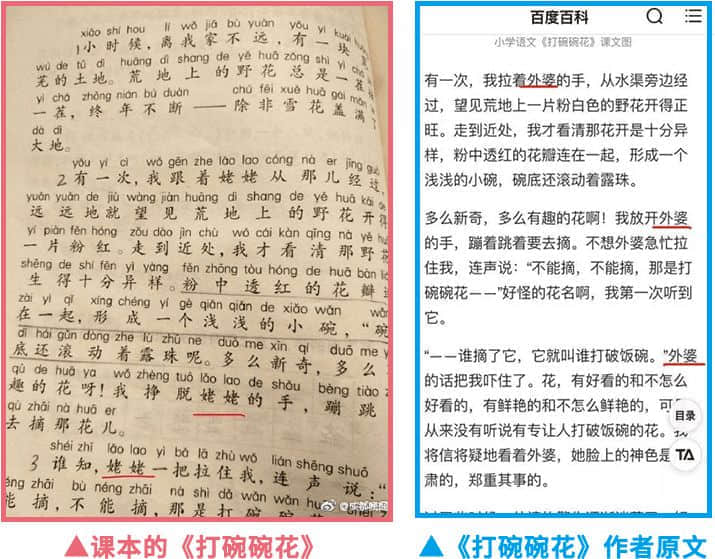 xiǎo shí hou lí wǒ jiā bù yuǎn yǒu yí kuài
1小时候，离我家不远，有一块
wú de tǔ dì huāng dì shang de yě huā zǒng shì yí chá
芜的土地。荒地上的野花总是一茬
yì chá zhōng nián bú duàn chú fēi xuě huā gài mǎn
一茬，终年不断——除非雪花盖满了
dà dì
大地。
yǒu yí cì wǒ gēn zhe lǎo lao cóng nà er jīng guò
2有一次，我跟着姥姥从那儿经过，
yuǎn yuǎn de jiù wàng jiàn huāng dì shang de yě huā kāi de
远远地就望见荒地上的野花开得
yí piàn fěn hóng zǒu dào jìn chù wǒ cái kàn qīng nà yě
一片粉红。走到近处，我才看清那野
shēng de shí fēn yì yàng fěn zhōng tòu hóng de huā bàn
生得十分异样。粉中透红的花瓣
zài yì qǐ xíng chéng yí gè qiǎn qiǎn de xiǎo wǎn wǎn
在一起，形成一个浅浅的小碗，“碗
dǐ hái gǔn dòng zhe lù zhū ne duō me xīn qí duō me
底还滚动着露珠呢。多么新奇，多么
qù de huā ya wǒ zhèng tuō lǎo lao de shǒu bèng tiào
趣的花呀！我挣脱姥姥的手，蹦跳
qù zhāi nà huā er
去摘那花儿。
shéi zhī lǎo lao yì bǎ lā zhù wǒ lián shēng shuō
3谁知，姥姥一把拉住我，连声说：“
néng zhāi bù néng zhāi nà shì dǎ wǎn wǎn huā
能摘，不能摘，那是打碗碗花
▲课本的《打碗碗花》
百度百科
小学语文《打碗碗花》课文图
有一次，我拉着外婆的手，从水渠旁边经
过，望见荒地上一片粉白色的野花开得正
旺。走到近处，我才看清那花开是十分异
样，粉中透红的花瓣连在一起，形成一个
浅浅的小碗，碗底还滚动着露珠。
多么新奇，多么有趣的花啊！我放开外婆
的手，蹦着跳着要去摘。不想外婆急忙拉
住我，连声说：“不能摘，不能摘，那是打
碗碗花——”好怪的花名啊，我第一次听到
它。
“——谁摘了它，它就叫谁打破饭碗。”外婆
的话把我吓住了。花，有好看的和不怎么
好看的，有鲜艳的和不怎么鲜艳的，可
从来没有听说有专让人打破饭碗的花。我
将信将疑地看着外婆，她脸上的神色是
肃的，郑重其事的。
目录
TA
▲《打碗碗花》作者原文